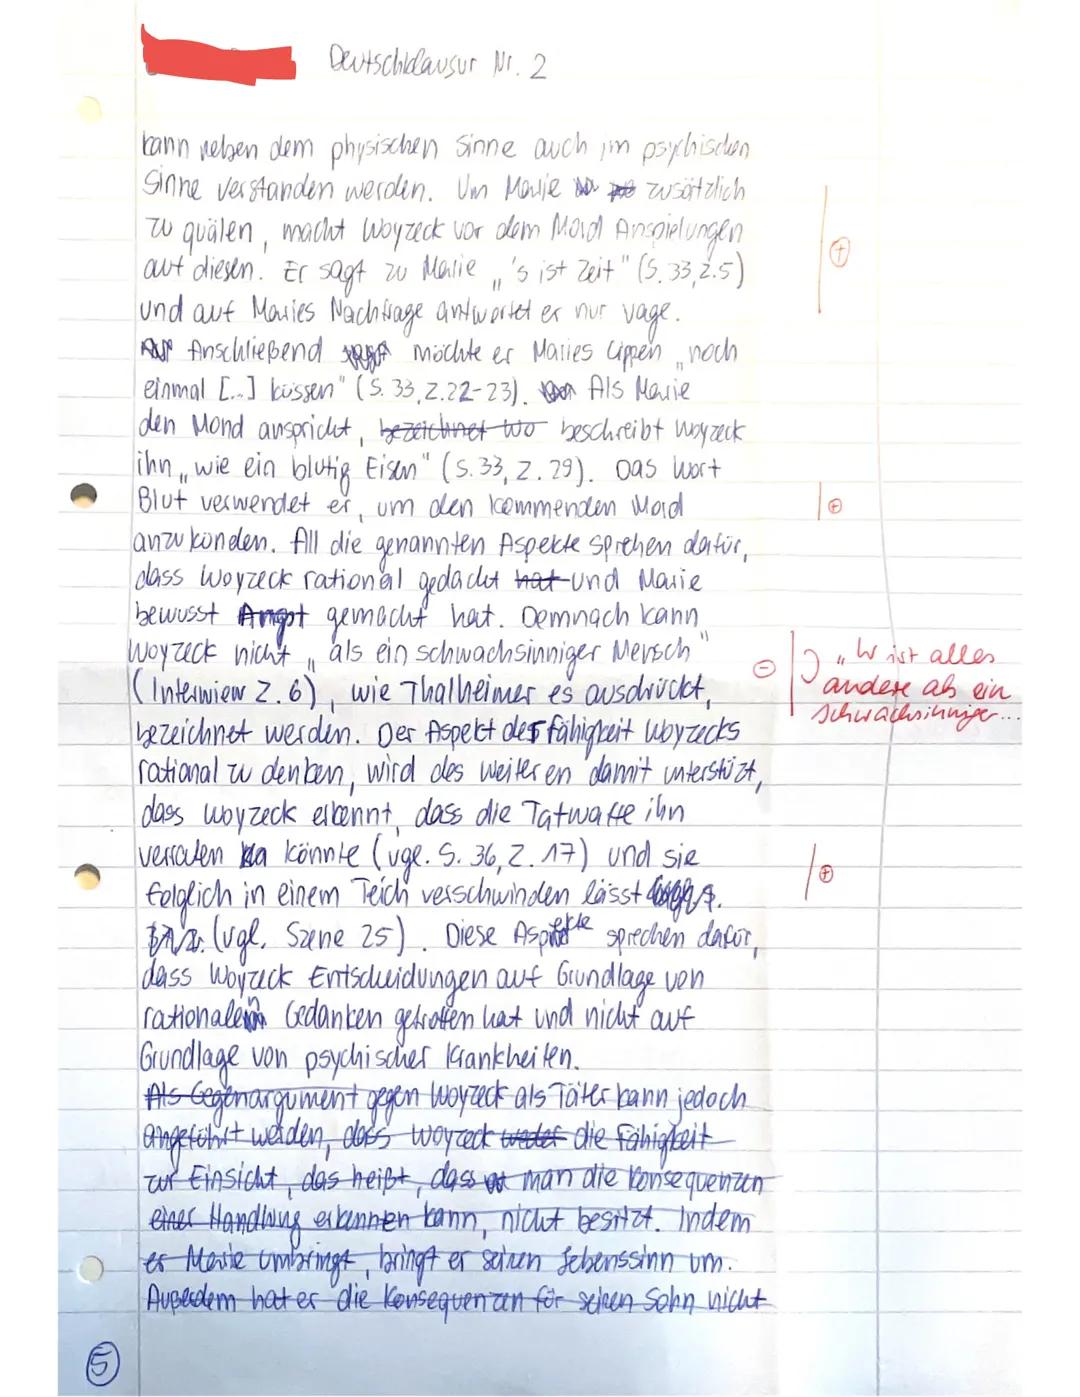 Deutschklausur Nr. 2
kann neben dem physischen Sinne auch im psychischen
Sinne verstanden werden. Um Marie zusätzlich
zu quälen, macht Woyzeck vor dem Mord Anspielungen
auf diesen. Er sagt zu Marie „'s ist Zeit" (S. 33, Z. 5)
und auf Maries Nachfrage antwortet er nur vage.
Anschließend möchte er Maries Lippen „noch
einmal [..] küssen" (S. 33, Z. 22-23). Als Marie
den Mond anspricht, bezeichnet Wo beschreibt Woyzeck
ihn „wie ein blutig Eisen" (S. 33, Z. 29). Das Wort
Blut verwendet er, um den kommenden Mord
anzukünden. All die genannten Aspekte sprechen dafür,
dass Woyzeck rational gedacht hat und Marie
bewusst Angst gemacht hat. Demnach kann
Woyzeck nicht „als ein schwachsinniger Mensch"
(Interview Z. 6), wie Thalheimer es ausdrückt,
bezeichnet werden. Der Aspekt der Fähigkeit Woyzecks
rational zu denken, wird des weiteren damit unterstüzt,
dass Woyzeck erkennt, dass die Tatwaffe ihn
verraten könnte (vgl. S. 36, Z. 17) und sie
folglich in einem Teich verschwinden lässt
(vgl. Szene 25). Diese Aspekte sprechen dafür,
dass Woyzeck Entscheidungen auf Grundlage von
rationalen Gedanken getroffen hat und nicht auf
Grundlage von psychischer Krankheiten.
Als Gegenargument gegen Woyzeck als Täter kann jedoch
angeführt werden, dass Woyzeck weder die Fähigkeit
zur Einsicht, das heißt, dass man die Konsequenzen
einer Handlung erkennen kann, nicht besitzt. Indem
er Marie umbringt, bringt er seinen Lebenssinn um.
Außerdem hat er die Konsequenzen für seinen Sohn nicht
5
+
+
- „W ist alles
andere als ein
schwachsinniger...
+